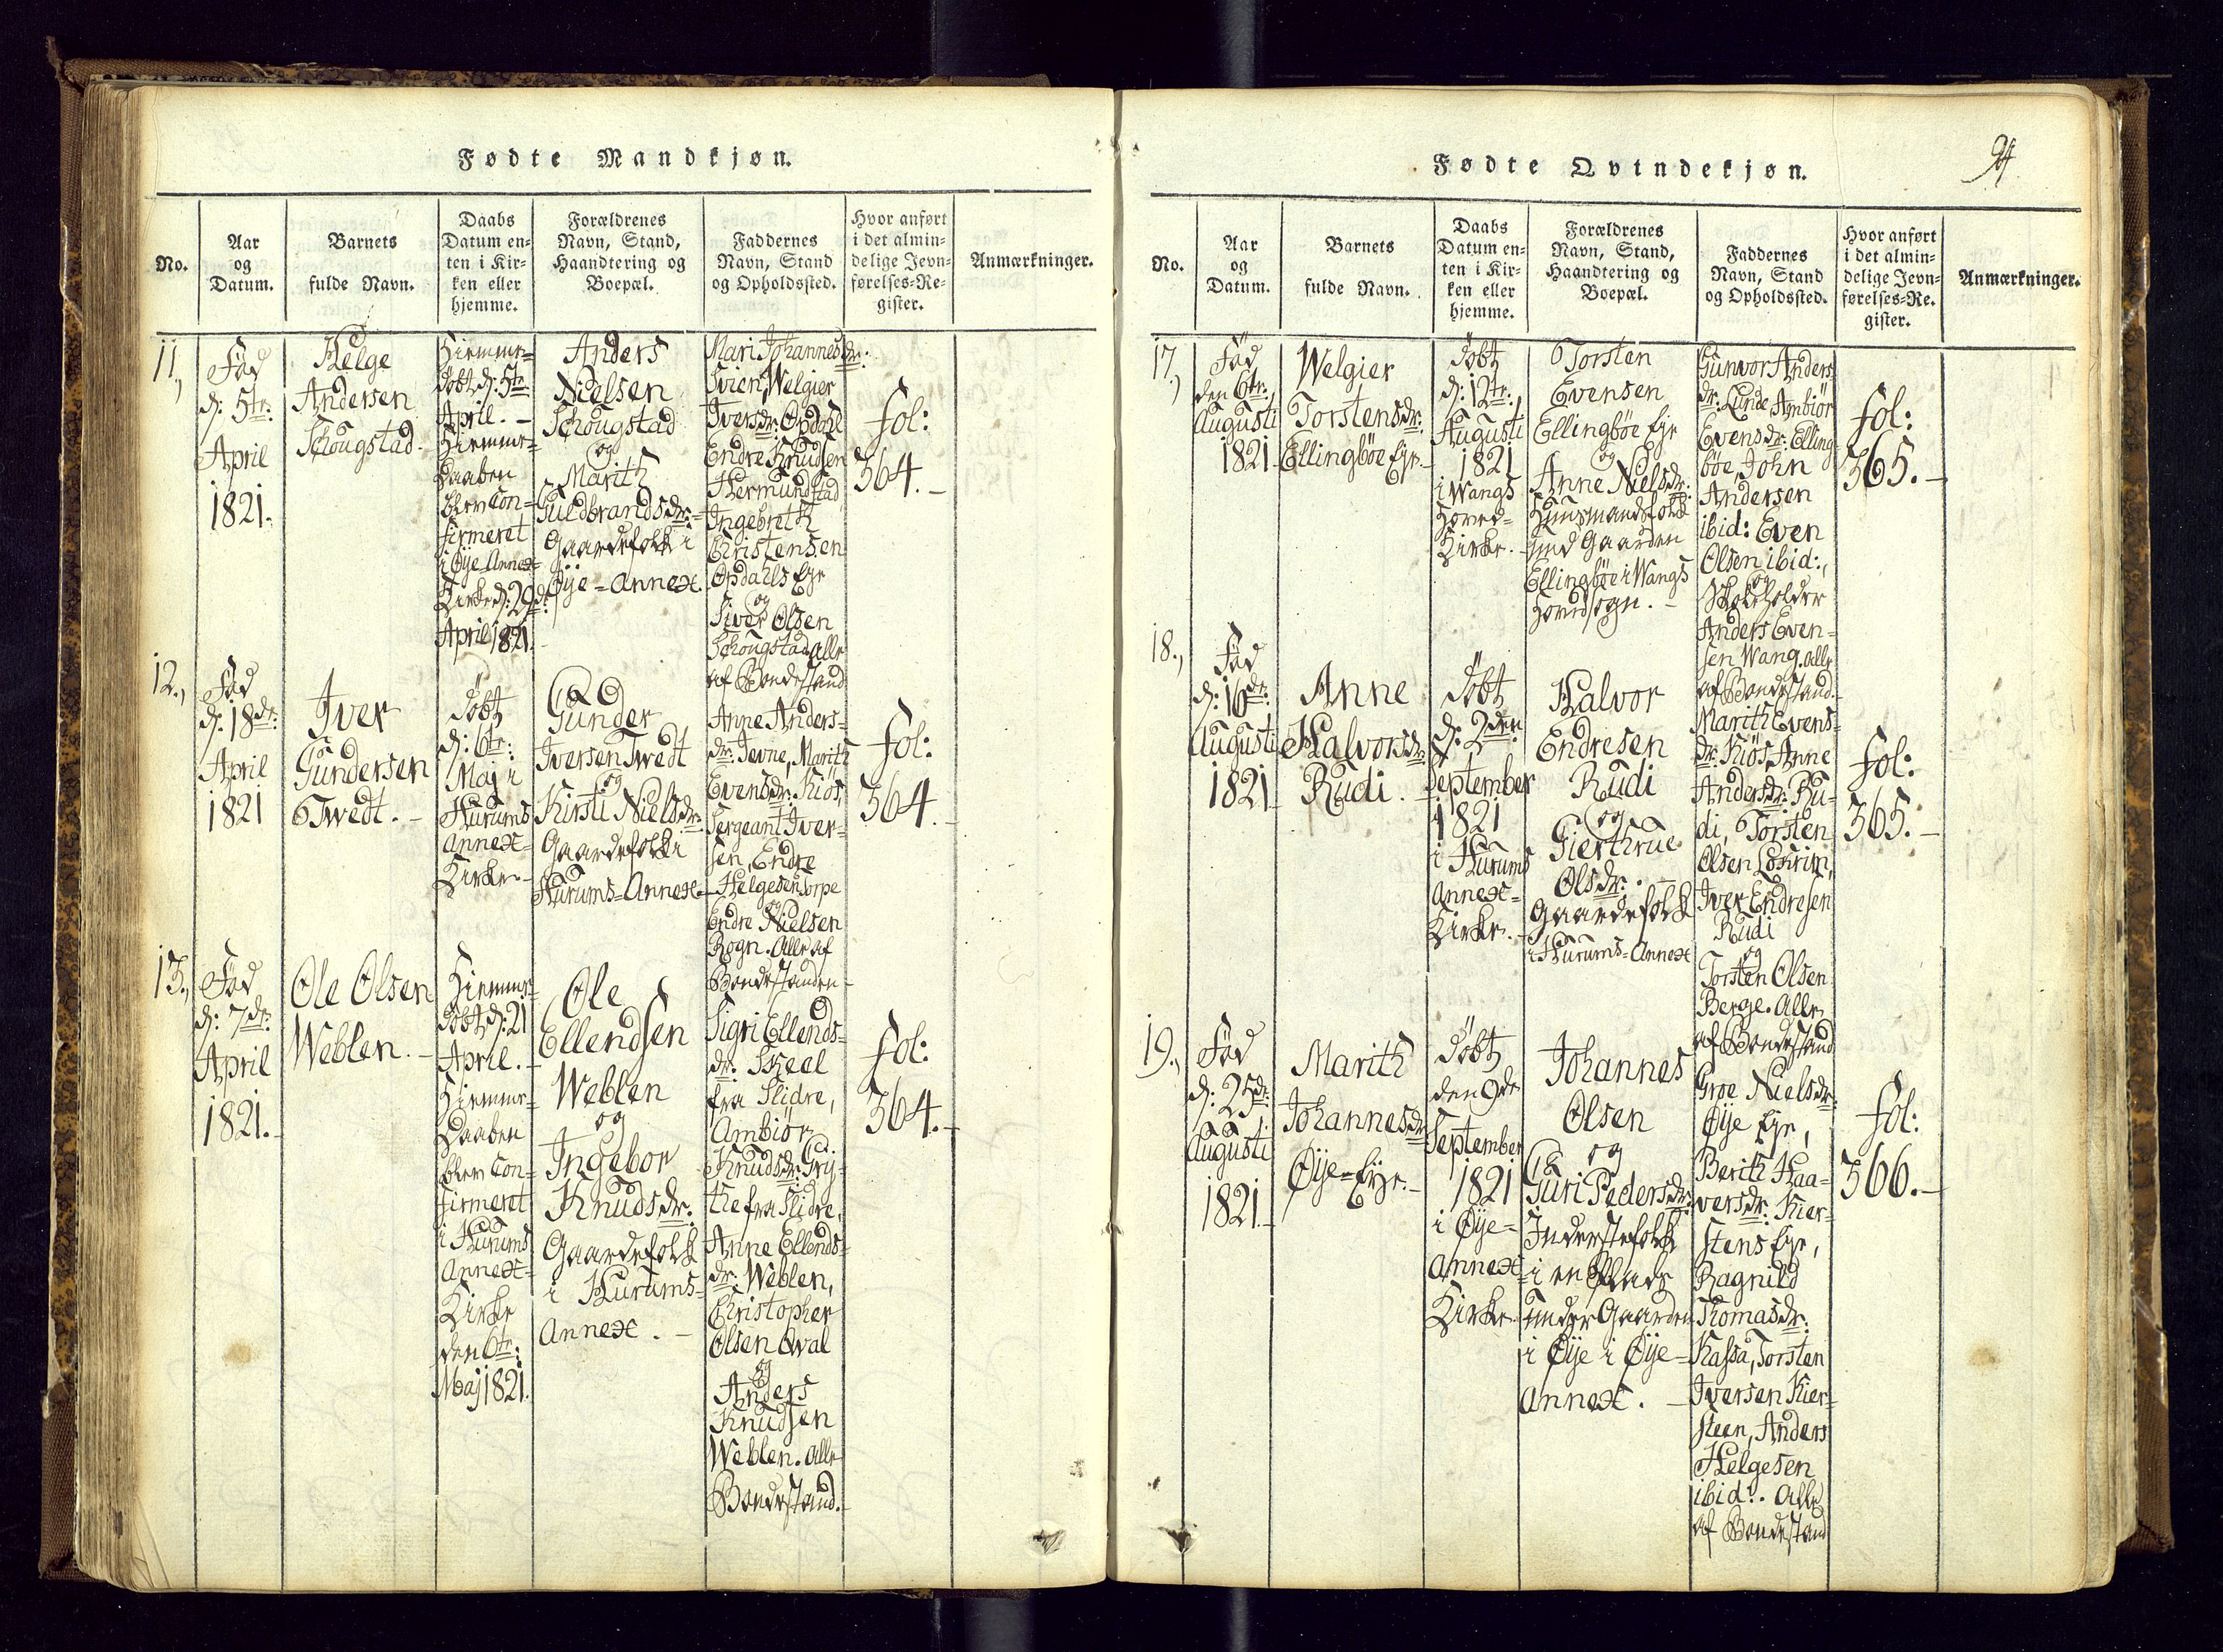 Fødte Mandkjøn.
No.
Aar
og
Datum.
Barnets
fulde Navn.
Daabs
Datum en-
ten i Kir-
ken eller
hjemme.
Forældrenes
Navn, Stand,
Haandtering og
Boepæl.
Faddernes
Navn, Stand
og Opholdssted.
Hvor anført
i det almin-
delige Jevn-
førelses-Re-
gister.
Anmærkninger.
11.,
Fød
d: 5te:
April
1821.
Helge
Andersen
Schougstad.
Hiemme-
døbt d: 5te
April. -
Hiemme-
Daaben
blev Con-
firmeret
i Øye Annex-
Kirke d: 29de
April 1821.
Anders
Nielsen
Schougstad
og
Marith
Guldbrandsdr:
Gaardefolk i
Øye-Annex.
Mari Johannesdr:
Svien, Welgier
Iversdr: Opdal
Endre Knudsen
Hermundstad
Ingebreth
Christensen
Opdahls Eye
og
Siver Olsen
Schougstad alle
af Bondestand
fol:
364. -
12.,
Fød
d: 18de:
April
1821
Iver
Gundersen
Twedt. -
Døbt
d: 6te:
Maj i
Hurums
Annex-
Kirke. -
Gunder
Iversen Twedt
og
Kirsti Nielsdr:
Gaardefolk i
Hurums-Annex. -
Anne Anders-
dr: Jevne, Marith
Evensdr: Kiøs,
Sergeant Iver-
sen, Endre
Helgesen Torpe
og
Endre Nielsen
Rogn. Alle af
Bondestanden -
fol:
364. -
13.,
Fød
d: 7de
April
1821. -
Ole Olsen
Weblen. -
Hiemme-
døbt d: 21
April. -
Hiemme-
Daaben
blev Con-
firmeret
i Hurums
Annex-
Kirke
den 6te:
Maj 1821.
Ole
Ellendsen
Weblen
og
Ingebor
Knudsdr:
Gaardefolk
i Hurums-
Annex. -
Sigri Ellends-
dr: Skeel
fra Slidre,
Ambiør
Knudsdr: Gry-
the fra Slidre,
Anne Ellends-
dr: Weblen,
Christopher
Olsen Qval
og
Anders
Knudsen
Weblen. Alle
Bondestand. -
fol:
364. -
Fødte Qvindekjøn.
94.
No.
Aar
og
Datum.
Barnets
fulde Navn.
Daabs
Datum en-
ten i Kir-
ken eller
hjemme.
Forældrenes
Navn, Stand,
Haandtering og
Boepæl.
Faddernes
Navn, Stand
og Opholdssted.
Hvor anført
i det almin-
delige Jevn-
førelses-Re-
gister.
Anmærkninger.
17.,
Fød
den 6te:,
Augusti
1821.
Welgier
Torstensdr:
Ellingbøe Eye. -
Døbt
d: 12te:,
Augusti
1821
i Wangs
Hoved-
Kirke. -
Torsten
Evensen
Ellingbøe Eye
og
Anne Nielsdr:
Huusmandsfolk
und Gaarden
Ellingbøe i Wangs
Hovedsogn. -
Gunvor Anders
dr: Lunde Ambiør
Evensdr: Elling-
bøe, John
Andersen
ibid: Even
Olsen ibid:,
og
Skoleholder
Anders Even-
sen Wang. alle
af Bondestand. -
fol:
365. -
18.,
Fød
d: 16de:
Augusti
1821.
Anne
Halvorsdr:
Rudi. -
Døbt
d: 2den:
September
1821
i Hurums
Annex-
Kirke. -
Halvor
Endresen
Rudi
og
Gierthrue
Olsdr: -
Gaardefolk
i Hurums-Annex
Marith Evens-
dr: Kiøs, Anne
Andersdr: Ru-
di, Torsten
Olsen
Iver Endresen
Rudi
og
Torsten Olsen
Berge. Alle
af Bondestand
fol:
365. -
19.,
Fød
d: 25de:
Augusti
1821. -
Marith
Johannesdr:
Øye-Eye. -
Døbt
den 9de
September
1821
i Øye-
Annex-
Kirke.
Johannes
Olsen
og
Guri Pedersdr:
Inderstefolk
i en Plads
under Gaarden
i Øye i Øye-
Annex. -
Groe Nielsdr:
Øye Eye,
Berith Haa-
versdr: Kier-
stens Eye,
Ragnild
Thomasdr:
Kassa, Torsten
Iversen Kier-
steen, Anders
Helgesen
ibid:. Alle
af Bondestand
fol:
366. -